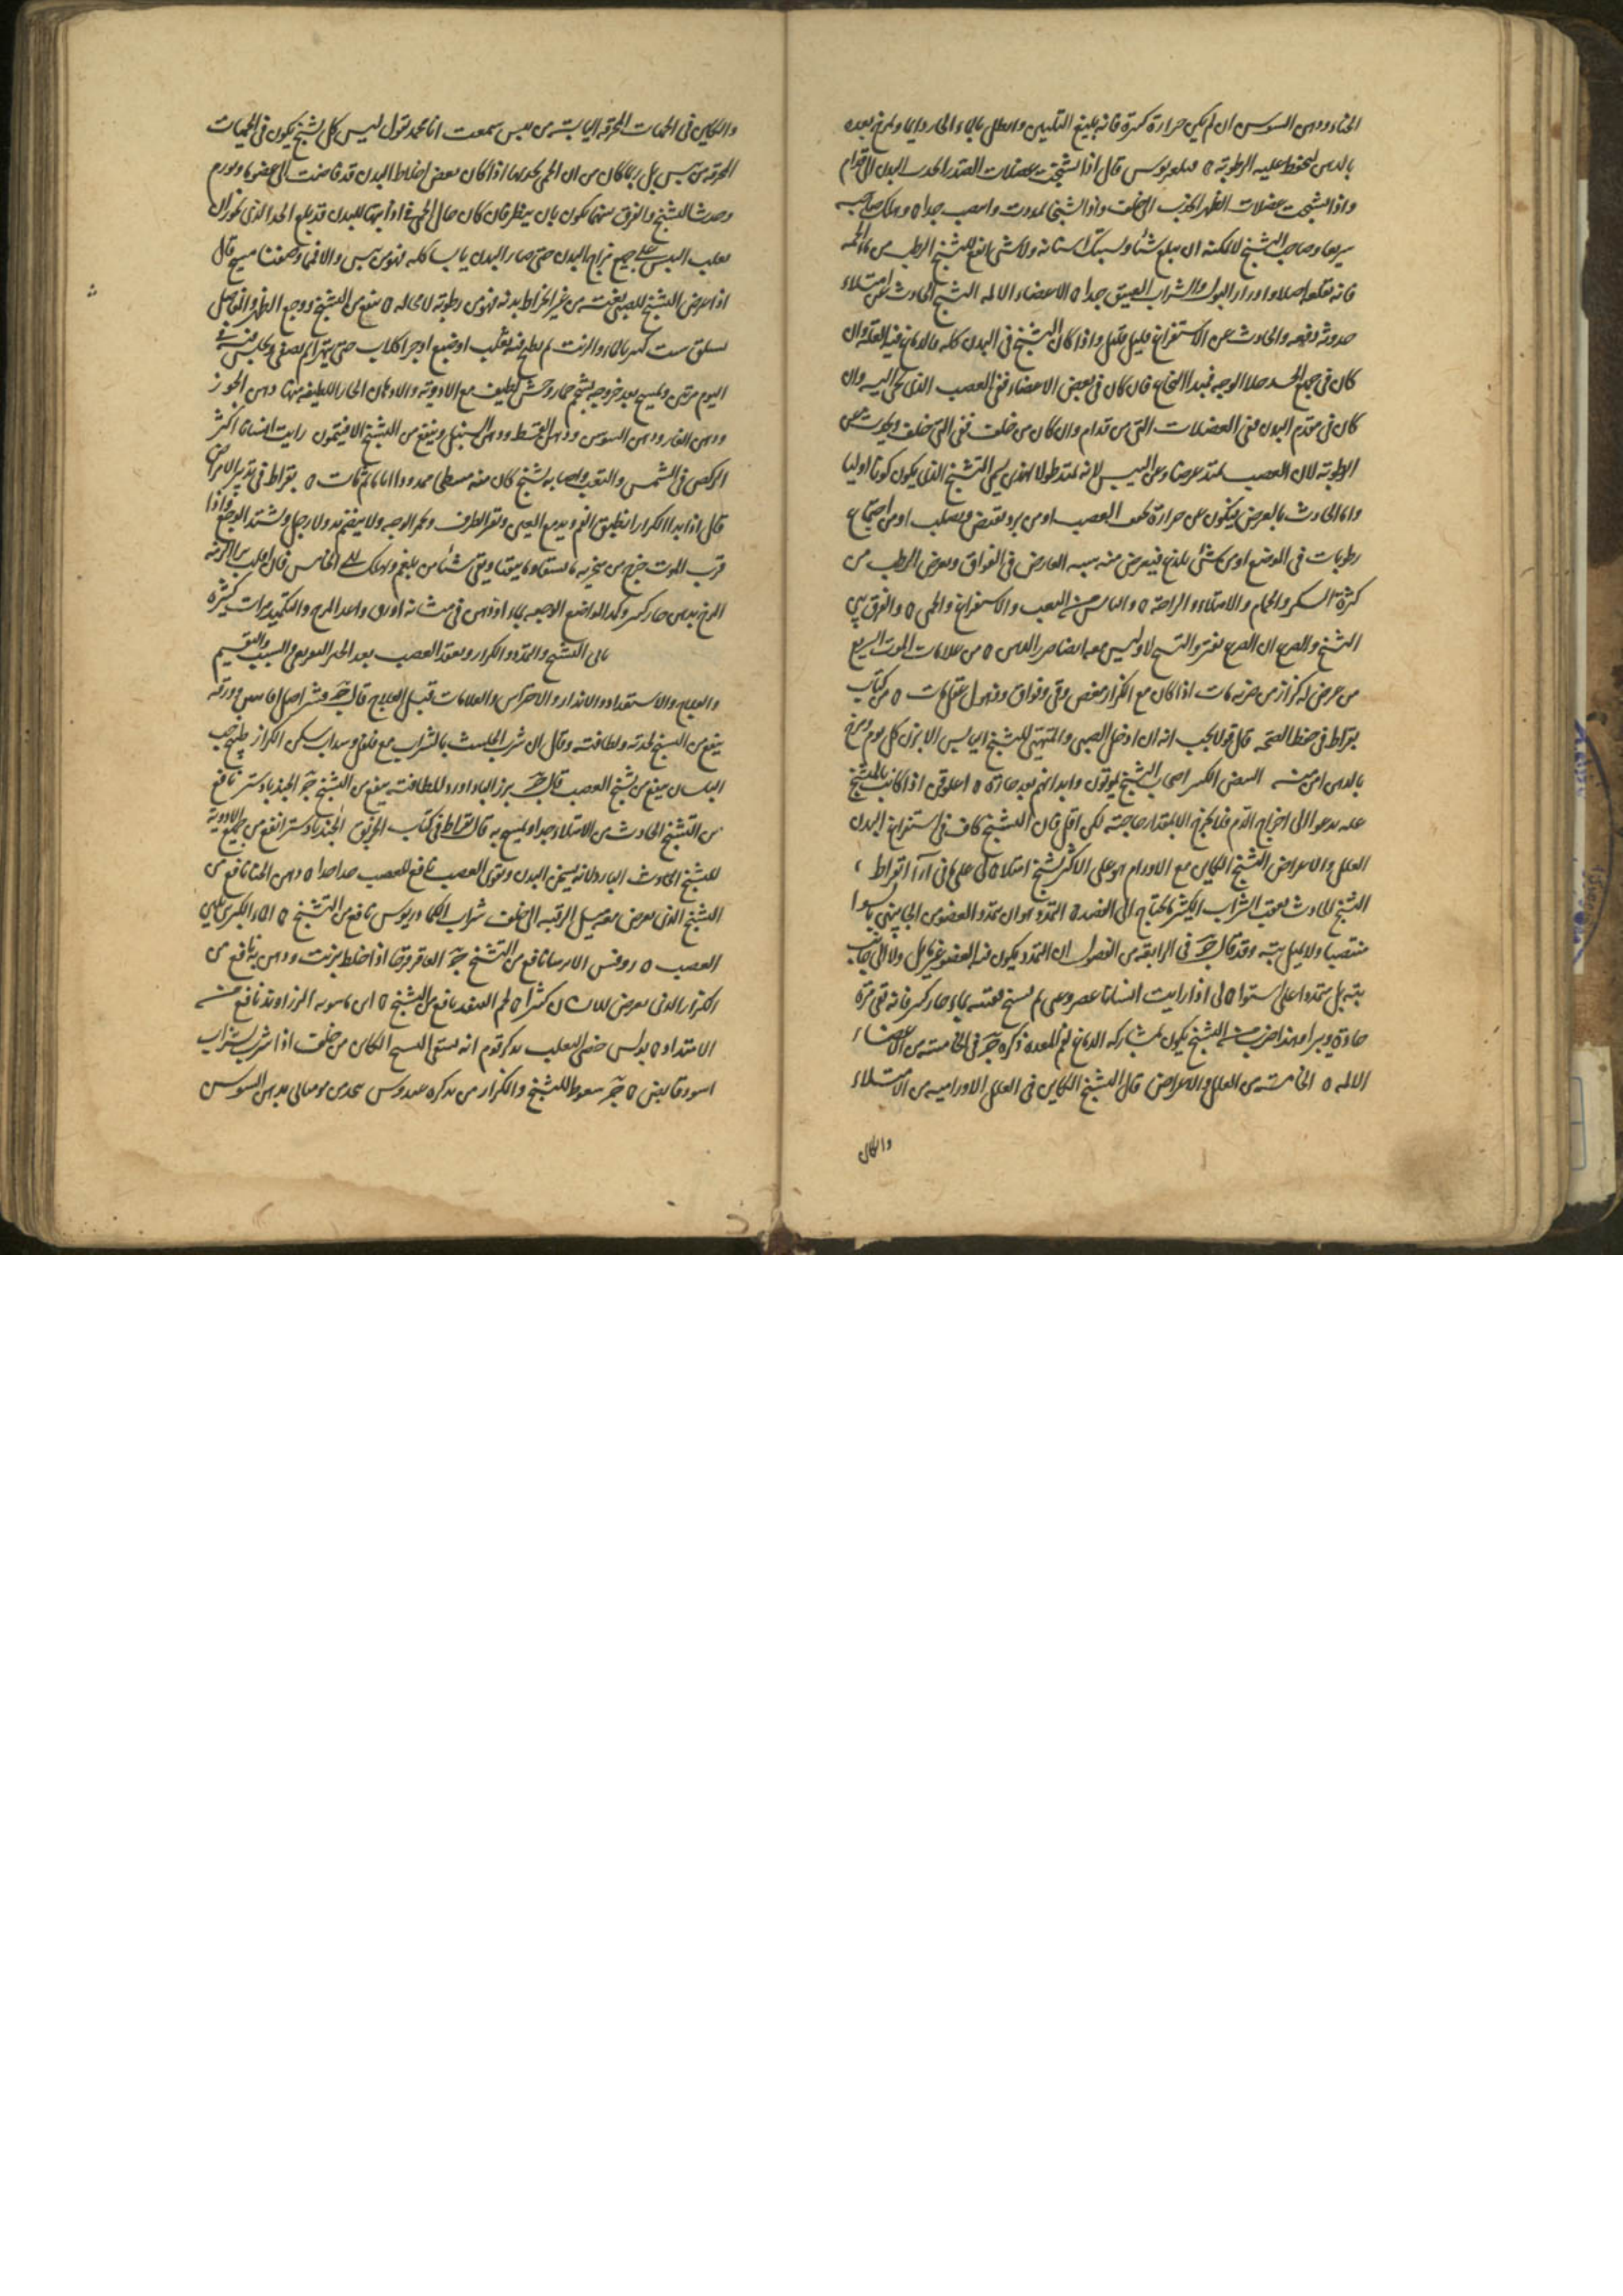 الحناء ودهن السوسن ان لم يكن حرارة كثيرة فانه بليغ التليين وانطل بالماء الحار دايما ومرخ بعده
بالدهن لتحفظ عليه الرطوبة ٥ قال اذا تشنجت عضلات الصدر انجذب البدن الى قدام
واذا تشنجت عضلات الظهر انجذب الى خلف واذا تشنجا تمددت وانتصب جدا ٥ وهلك صاحبه
سريعا وصاحب التشنج لا يمكنه ان يبلع شيئا وتشتبك اسنانه ولا شى انفع للتشنج الرطب من الحمى
فانه يقلعه اصلا وادرار البول والشراب العتيق جدا ٥ الاعضاء الالمه التشنج الحادث عن امتلاء
حدوثه دفعه والحادث عن الاستفراغ قليل قليل واذا كان التشنج فى البدن كله فالدماغ فيه العله وان
كان فى جميع الجسد خلا الوجه فمبدا النخاع فان كان فى بعض الاعضاء ففى العصب الذى يجى اليه وان
كان فى مقدم البدن ففى العضلات التى من قدام وان كان من خلف ففى التى خلف ويحدث عن
الرطوبة لان العصب يمتد عرضا وعن اليبس لانه يمتد طولا لهذى يسمى التشنج الذى يكون كونا اوليا
واما الحادث بالعرض فيكون عن حرارة تجفف العصب او من برد يقبض ويصلب او من اجتماع
رطوبات فى الموضع او من شى يلذع فيعرض منه شبيه العارض فى الفواق ويعرض الرطب من
كثرة السكر والحمام والامتلاء والراحة ٥ واليابس من التعب والاستفراغ والحمى ٥ والفرق بين
التشنج والصرع ان الصرع يفتر والتشنج لا وليس معه ايضا ضرر الحس ٥ من علامات الموت السريع
من عرض له كزاز من ضربه مات اذا كان مع الكزاز مغص وقى وفواق وذهول عقل مات ٥ من كتاب
بقراط فى حفظ الصحه قال قولا يجب انه ان ادخل الصبى والمتهيى للتشنج اليابس الابزن كل يوم ومرخ
بالدهن امن منه النبض الكبير اصحاب التشنج يموتون وابدانهم بعد حارة ٥ اغلوقن اذا كانت بالتشنج
عله يدعو الى اخراج الدم فلا تخرج الا بمقدار حاجته لكن اقل فان التشنج كاف فى استفراغ البدن
العلل والاعراض التشنج الكاين مع الاورام هو على الاكثر تشنج امتلاء ٥ لى على ما فى آراء بقراط ،
التشنج الحادث بعقب الشراب الكثير ما يحتاج الى الفصد ٥ التمدد هو ان يتمدد العضو من الجانبين بالسواء
منتصبا ولا يميل بته وقد قال ج فى الرابعة من الفصول ان التمدد يكون فيه العضو غير مايل ولا الى جانب
بته بل ممتدا على استوا ٥ لى اذا رايت انسانا عسر وعى ثم تشنج فقيئه بماء حار كثير فانه يقى مرة
حادة ويبرا وهذا ضرب من التشنج يكون بمشاركه الدماغ لفم المعده ذكره ج فى الخامسة من الاعضاء
الالمه ٥ الخامسة من العلل والاعراض قال التشنج الكاين فى العلل الاوراميه من الامتلاء
والكاين
والكاين فى الحميات المحرقه اليابسة من يبس سمعت انا محمد نقول ليس كل تشنج يكون فى الحميات
المحرقة من يبس بل ربما كان من ان الحمى تكون بها اذا كان بعض اخلاط البدن قد فاضت الى عضو ما وتورم
وحدث التشنج والفرق بينهما يكون بان ينظر فان كان حال الحمى فى اذابتها للبدن قد بلغ الحد الذى يجوز ان
يغلب اليبس على جميع مزاج البدن حتى صار البدن يابسا كله فهو من يبس والا فما وصفنا مسيح قال
اذا عرض التشنج للصبى بغتة من غير انخراط بدنه فهو من رطوبة لا محاله ٥ ينفع من التشنج ووجع الظهر والمفاصل
بالماء والزيت ثم يطبخ فيه ثعلب او ضبع او جرا كلاب حتى يتهرا ثم يصفى ويجلس فيه فى
اليوم مرتين ويمسح بعد خروجه بشحم حمار وحش لطيف مع الادوية والادهان الحارة اللطيفه منها دهن الجوز
ودهن الغار ودهن السوسن ودهن القسط ودهن السنبل وينفع من التشنج الافيثمون رايت انسانا اكثر
الركض فى الشمس والتعب واصابه تشنج كان منه ممددا اياما ثم مات ٥ بقراط فى تدبير الامراض
قال اذا بدا الكزاز انطبق الفم وتدمع العين وتفتر الطرف ويحمر الوجه ولا يضم يده ولا رجله ويشتد الوجع واذا
قرب الموت خرج من منخريه ما يستقاه وما يتقيا ويقى شيئا من بلغم ويهلك الى الخامس فان افلت برا
المرخ بدهن حار كثير وكمد المواضع الوجعه بماء او دهن فى مثانه او زق واعد المرخ والتكميد مرات كثيرة
والتمدد والكزاز وتعقد العصب بعد الحد التعريف والسبب والتقسيم
والعلاج والاستعداد والانذار والاحتراس والعلامات قبل العلاج قال ج وقشر اصل وورقه
ينفع من التشنج لحدته ولطافته وقال ان شرب الحلتيت بالشراب مع فلفل وسداب سكن الكزاز طبيخ حب
البلسان ينفع من تشنج العصب قال ج بزر البادآورد للطافته ينفع من التشنج ج الجندبادستر نافع
من التشنج الحادث من الامتلاء جدا ويمسح به قال بقراط فى كتاب الخربق الجندبادستر انفع من جميع الادوية
للتشنج الحادث البارد لانه يسخن البدن ويقوى العصب نافع للعصب جدا جدا ٥ دهن الحنا نافع من
التشنج الذى يعرض معه ميل الرقبه الى خلف شراب الكمادريوس نافع من التشنج ٥
العصب ٥ روفس الايرسا نافع من التشنج ج العاقرقرحا اذا خلط بزيت ودهن به نافع من
الكزاز الذى يعرض للانسان كثيرا ٥ لحم القنفد نافع من التشنج ٥ ابن ماسويه الزراوند نافع من
الامتداد ٥ بولس خصى الثعلب يذكر قوم انه يشفى التشنج الكاين من خلف اذا شرب بشراب
اسود قابض ٥ ج سعوط للتشنج والكزاز من تذكره عبدوس بدهن السوسن